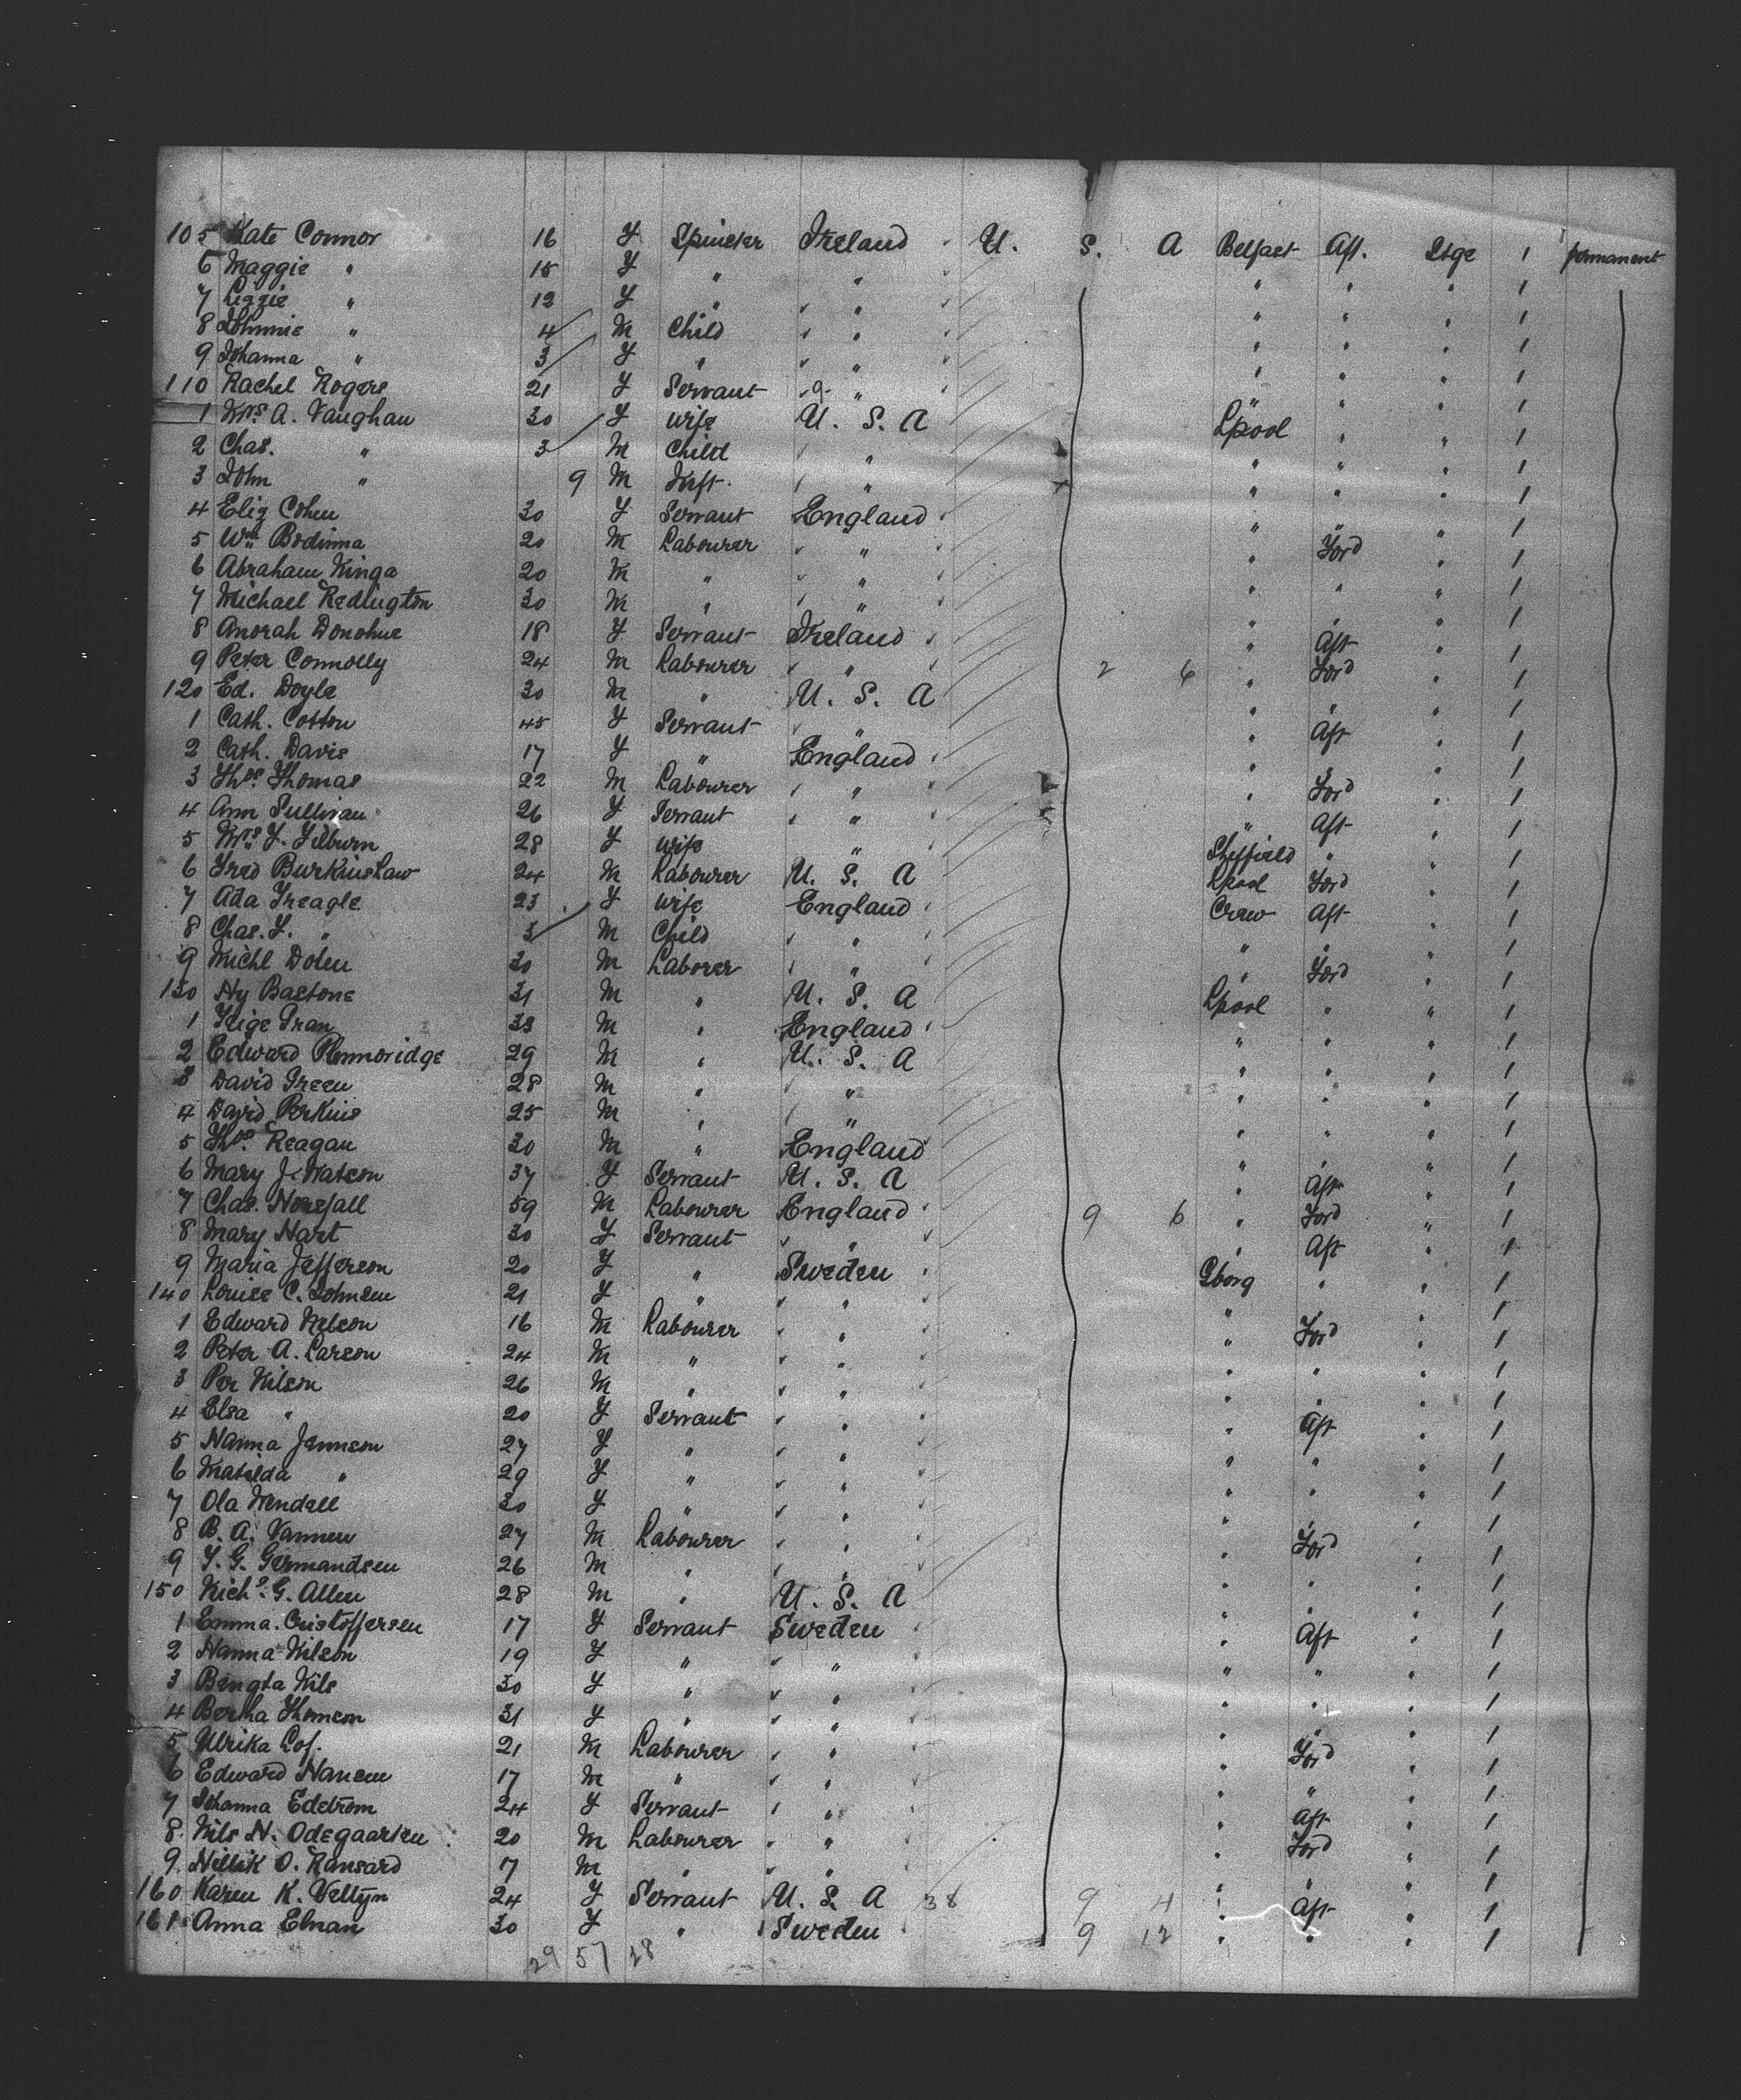 105 Kate Connor 16 F Spinster Ireland U. S. A Belfast Aft. Stge 1 permanent
6 Maggie " 15 F " " " " " 1
7 Lizzie " 12 F " " " " " 1
8 Johnnie " 4 M Child " " " " 1
9 Johanna " 3 F " " " " " 1
110 Rachel Rogers 21 F Servant " " " " 1
1 Mrs A. Vaughan 30 F Wife U. S. A Lpool " " 1
2 Chas. " 3 M Child " " " " 1
3 John " 9 M Inft. " " " " 1
4 Eliz Cohen 30 F Servant England " " " 1
5 Wm Bodinna 20 M Labourer " " Ford " 1
6 Abraham Kinga 20 M " " " " " 1
7 Michael Redlington 30 M " " " " " 1
8 Anorah Donohue 18 F Servant Ireland " Aft " 1
9 Peter Connolly 24 M Labourer " 2 6 " Ford " 1
120 Ed. Doyle 30 M " U. S. A " " " 1
1 Cath. Cotton 45 F Servant " " Aft " 1
2 Cath. Davis 17 F " England " " " 1
3 Thos. Thomas 22 M Labourer " " Ford " 1
4 Ann Sullivan 26 F Servant " " Aft " 1
5 Mrs F. Filburn 28 F Wife " Sheffield " " 1
6 Fred Burkinshaw 24 M Labourer U. S. A Lpool Ford " 1
7 Ada Treagle 23 F Wife England Crew Aft " 1
8 Chas. F. " 3 M Child " " " " 1
9 Michl Dolen 30 M Laborer " " Ford " 1
130 Hy Bastone 31 M " U. S. A Lpool " " 1
1 Gran 38 M " England " " " 1
2 Edward 29 M " U. S. A " " " 1
3 David Green 28 M " " " " " 1
4 David Perkins 25 M " " " " " 1
5 Thos. Reagan 30 M " England " " " 1
6 Mary J. Watson 37 F Servant U. S. A " Aft " 1
7 Chas. Horsfall 59 M Labourer England 9 6 " Ford " 1
8 Mary Hart 30 F Servant " " Aft " 1
9 Maria Jefferson 20 F " Sweden Gborg " " 1
140 Louise C. Johnsen 21 F " " " " " 1
1 Edward Nelson 16 M Labourer " " Ford " 1
2 Peter A. Larson 24 M " " " " " 1
3 Per Nilson 26 M " " " " " 1
4 Elsa " 20 F Servant " " Aft " 1
5 Hanna Jennson 27 F " " " " " 1
6 Matilda " 29 F " " " " " 1
7 Ola Wendell 30 F " " " " " 1
8 B. A. Vannen 27 M Labourer " " Ford " 1
9 F. G. Germandsen 26 M " " " " " 1
150 Richd. G. Allen 28 M " U. S. A " " " 1
1 Emma Cristoffersen 17 F Servant Sweden " Aft " 1
2 Hanna Nilson 19 F " " " " " 1
3 Bengta Nils 30 F " " " " " 1
4 Bertha Thomson 31 F " " " " " 1
5 Ulrika Lof. 21 M Labourer " " Ford " 1
6 Edward Hansen 17 M " " " " " 1
7 Johanna Edstrom 24 F Servant " " Aft " 1
8 Nils N. Odegaarten 20 M Labourer " " Ford " 1
9 O. Ransard 17 M " " " " " 1
160 Karen K. Veltyn 24 F Servant U. S. A 38 9 4 " Aft " 1
161 Anna Elnan 30 F " Sweden 9 12 " " " 1
29 57 28